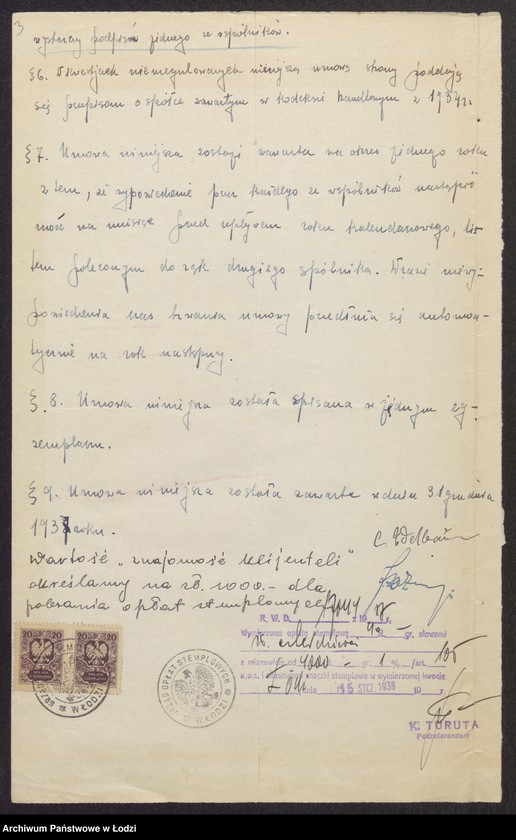 3
wystarczy podpis jednego ze wspólników.
§ 6. W kwestjach nieuregulowanych niniejszą umową strony poddają
się przepisom o spółce zawartym w kodeksie handlowym z 1934 r.
§ 7. Umowa niniejsza zostaje zawarta na okres jednego roku
z tem, że wypowiedzenie przez każdego ze wspólników nastąpić
może na miesiąc przed upływem roku kalendarzowego, lis-
tem poleconym do rąk drugiego spólnika. W razie niewy-
powiedzenia czas trwania umowy przedłuża się automa-
tycznie na rok następny.
§. 8. Umowa niniejsza została spisana w jednym eg-
zemplarzu.
§ 9. Umowa niniejsza została zawarta w dniu 31 grudnia
1937 roku.
Wartość "znajomość klijenteli"
określamy na zł. 1000.- dla
pobrania opłat stemplowych
20 20
20 20
URZĄD OPŁAT STEMPLOWYCH
W ŁODZI
URZĄD OPŁAT STEMPLOWYCH
W ŁODZI
R. W. D. z 19
Wymierzono opłatę stemplową zł. gr. słowami
z mianowicie od 4000 gr. 1 % /art. 105
u.o.s. i skasowano znaczki stemplowe w wymierzonej kwocie
Łódź dnia 15 STYZ. 1938 19 r.
K. TORUTA
Podreferendarz
Archiwum Państwowe w Łodzi